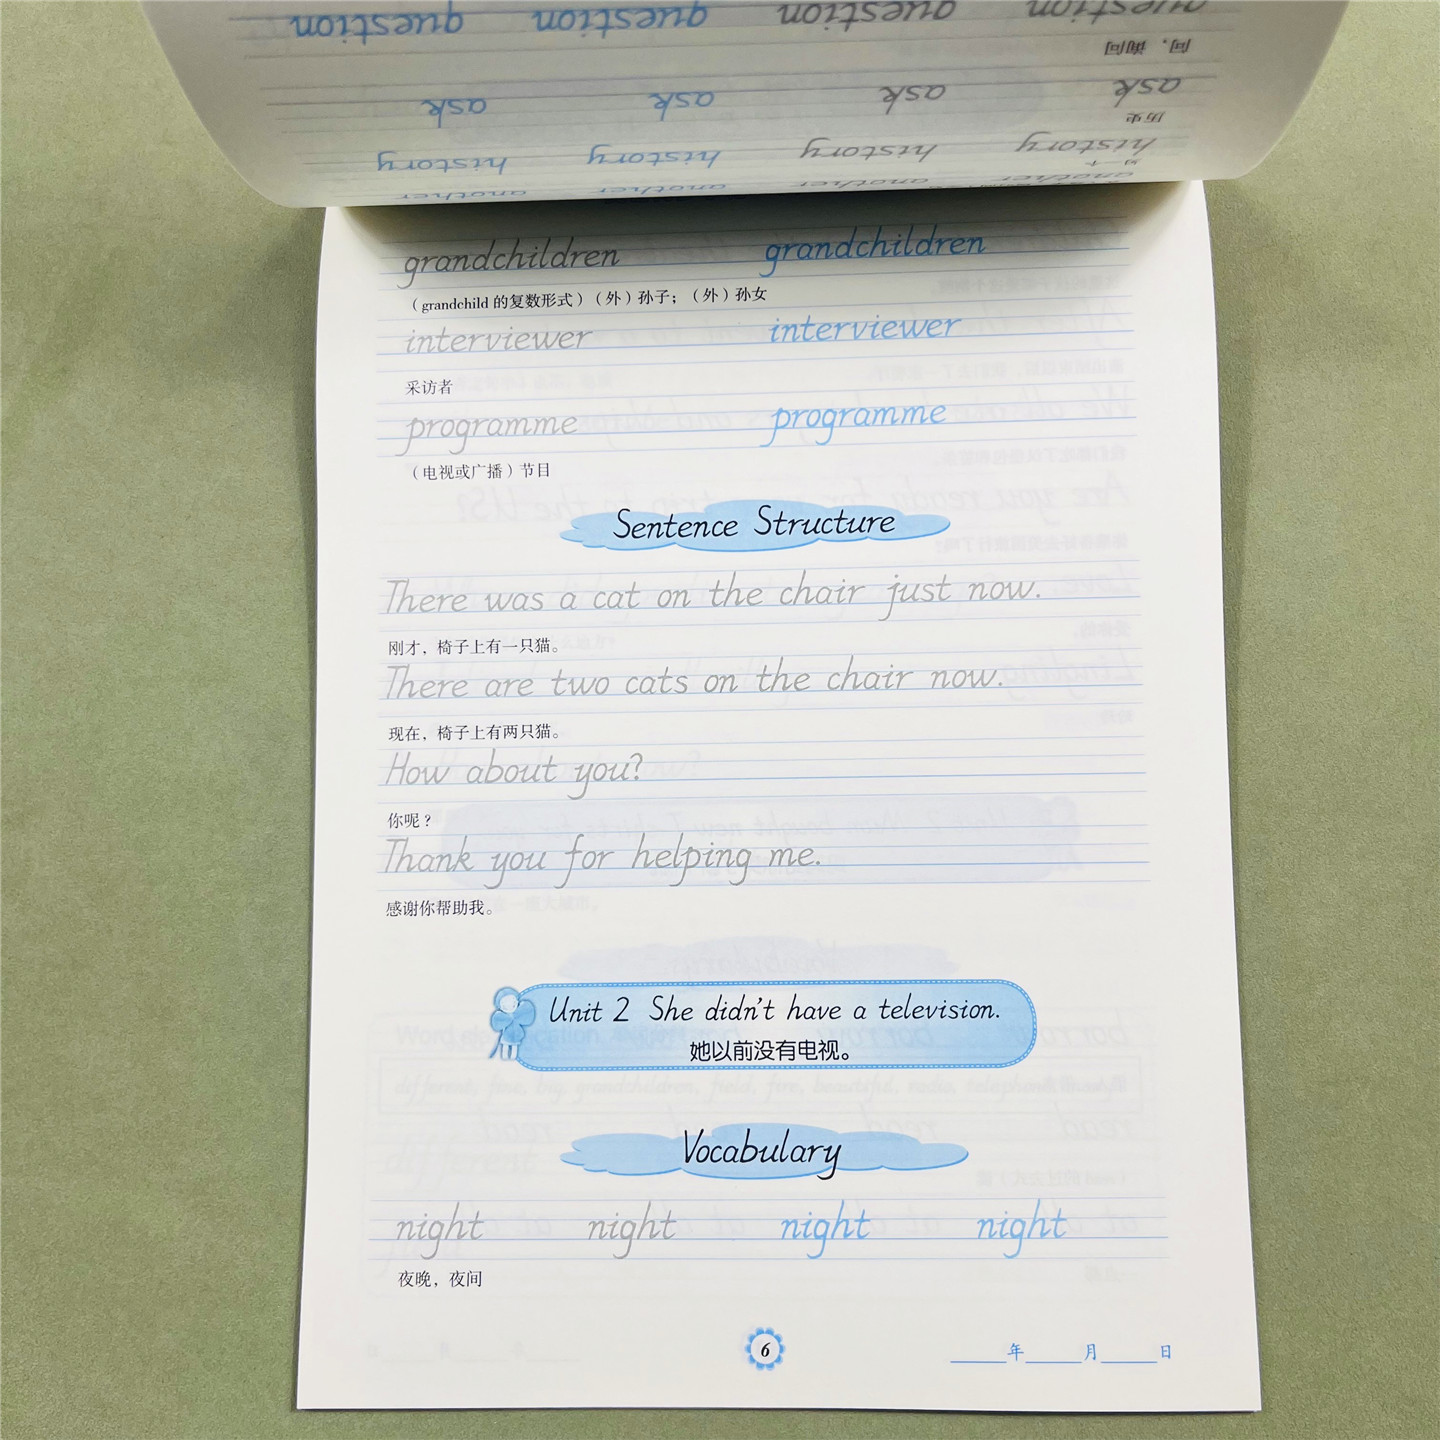 question question question question
问，询问
ask ask ask ask
历史
history history history history
另一个
another another another another
grandchildren grandchildren
（grandchild 的复数形式）（外）孙子；（外）孙女
interviewer interviewer
采访者
programme programme
（电视或广播）节目
Sentence Structure
There was a cat on the chair just now.
刚才，椅子上有一只猫。
There are two cats on the chair now.
现在，椅子上有两只猫。
How about you?
你呢？
Thank you for helping me.
感谢你帮助我。
Unit 2 She didn't have a television.
她以前没有电视。
Vocabulary
night night night night
夜晚，夜间
6
______年______月______日